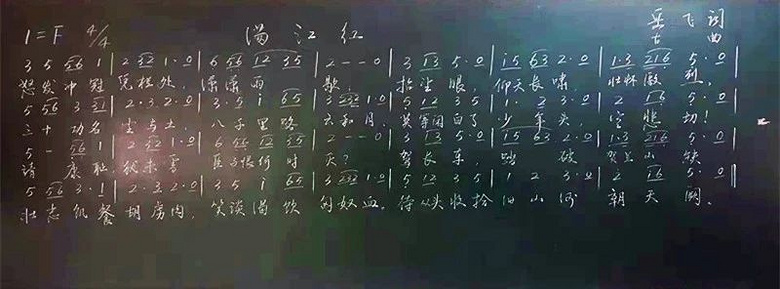 1=F 4/4 满江红 岳飞词
古曲
3 5 5̲6̲ 1 | 2 3̲2̲ 1·0 | 6 5̲6̲ 1̲2̲ 3̲5̲ | 2 - - 0 | 3 1̲3̲ 5·0 | i̲5̲ 6̲3̲ 2·0 | 1·3 2̲1̲6̲ 5·0 |
怒发冲冠 凭栏处, 潇潇雨 歇, 抬望眼, 仰天长啸, 壮怀激 烈,
5 5̲6̲ 3 2̲1̲ | 2·3 2·0 | 3·5 i 6̲5̲ | 3 2̲3̲2̲ 1·0 | 5 1̲2̲ 3 5 | 1· 2 3·0 | 2 1̲6̲ 5·0 |
三十功名 尘与土, 八千里路 云和月, 莫等闲白了 少年头, 空悲 切!
5 - 5̲6̲ 1 | 2 3̲2̲ 1·0 | 6 5̲6̲ 1̲2̲ 3̲5̲ | 2 - - 0 | 3 1̲3̲ 5·0 | i̲5̲ 6̲3̲ 2·0 | 1·3 2̲1̲6̲ 5·0
靖 康耻 犹未雪 臣子恨何时 灭? 驾长车, 踏 破 贺兰山 缺
5 5̲6̲ 3·1 | 2·3 2·0 | 3 5 i 6̲5̲ | 3 2̲3̲2̲ 1·0 | 5 1̲2̲ 3 5 | 1 2 3·0 | 2 1̲6̲ 5·0 ‖
壮志饥餐 胡虏肉, 笑谈渴饮 匈奴血, 待从头收拾 旧山河 朝天 阙.